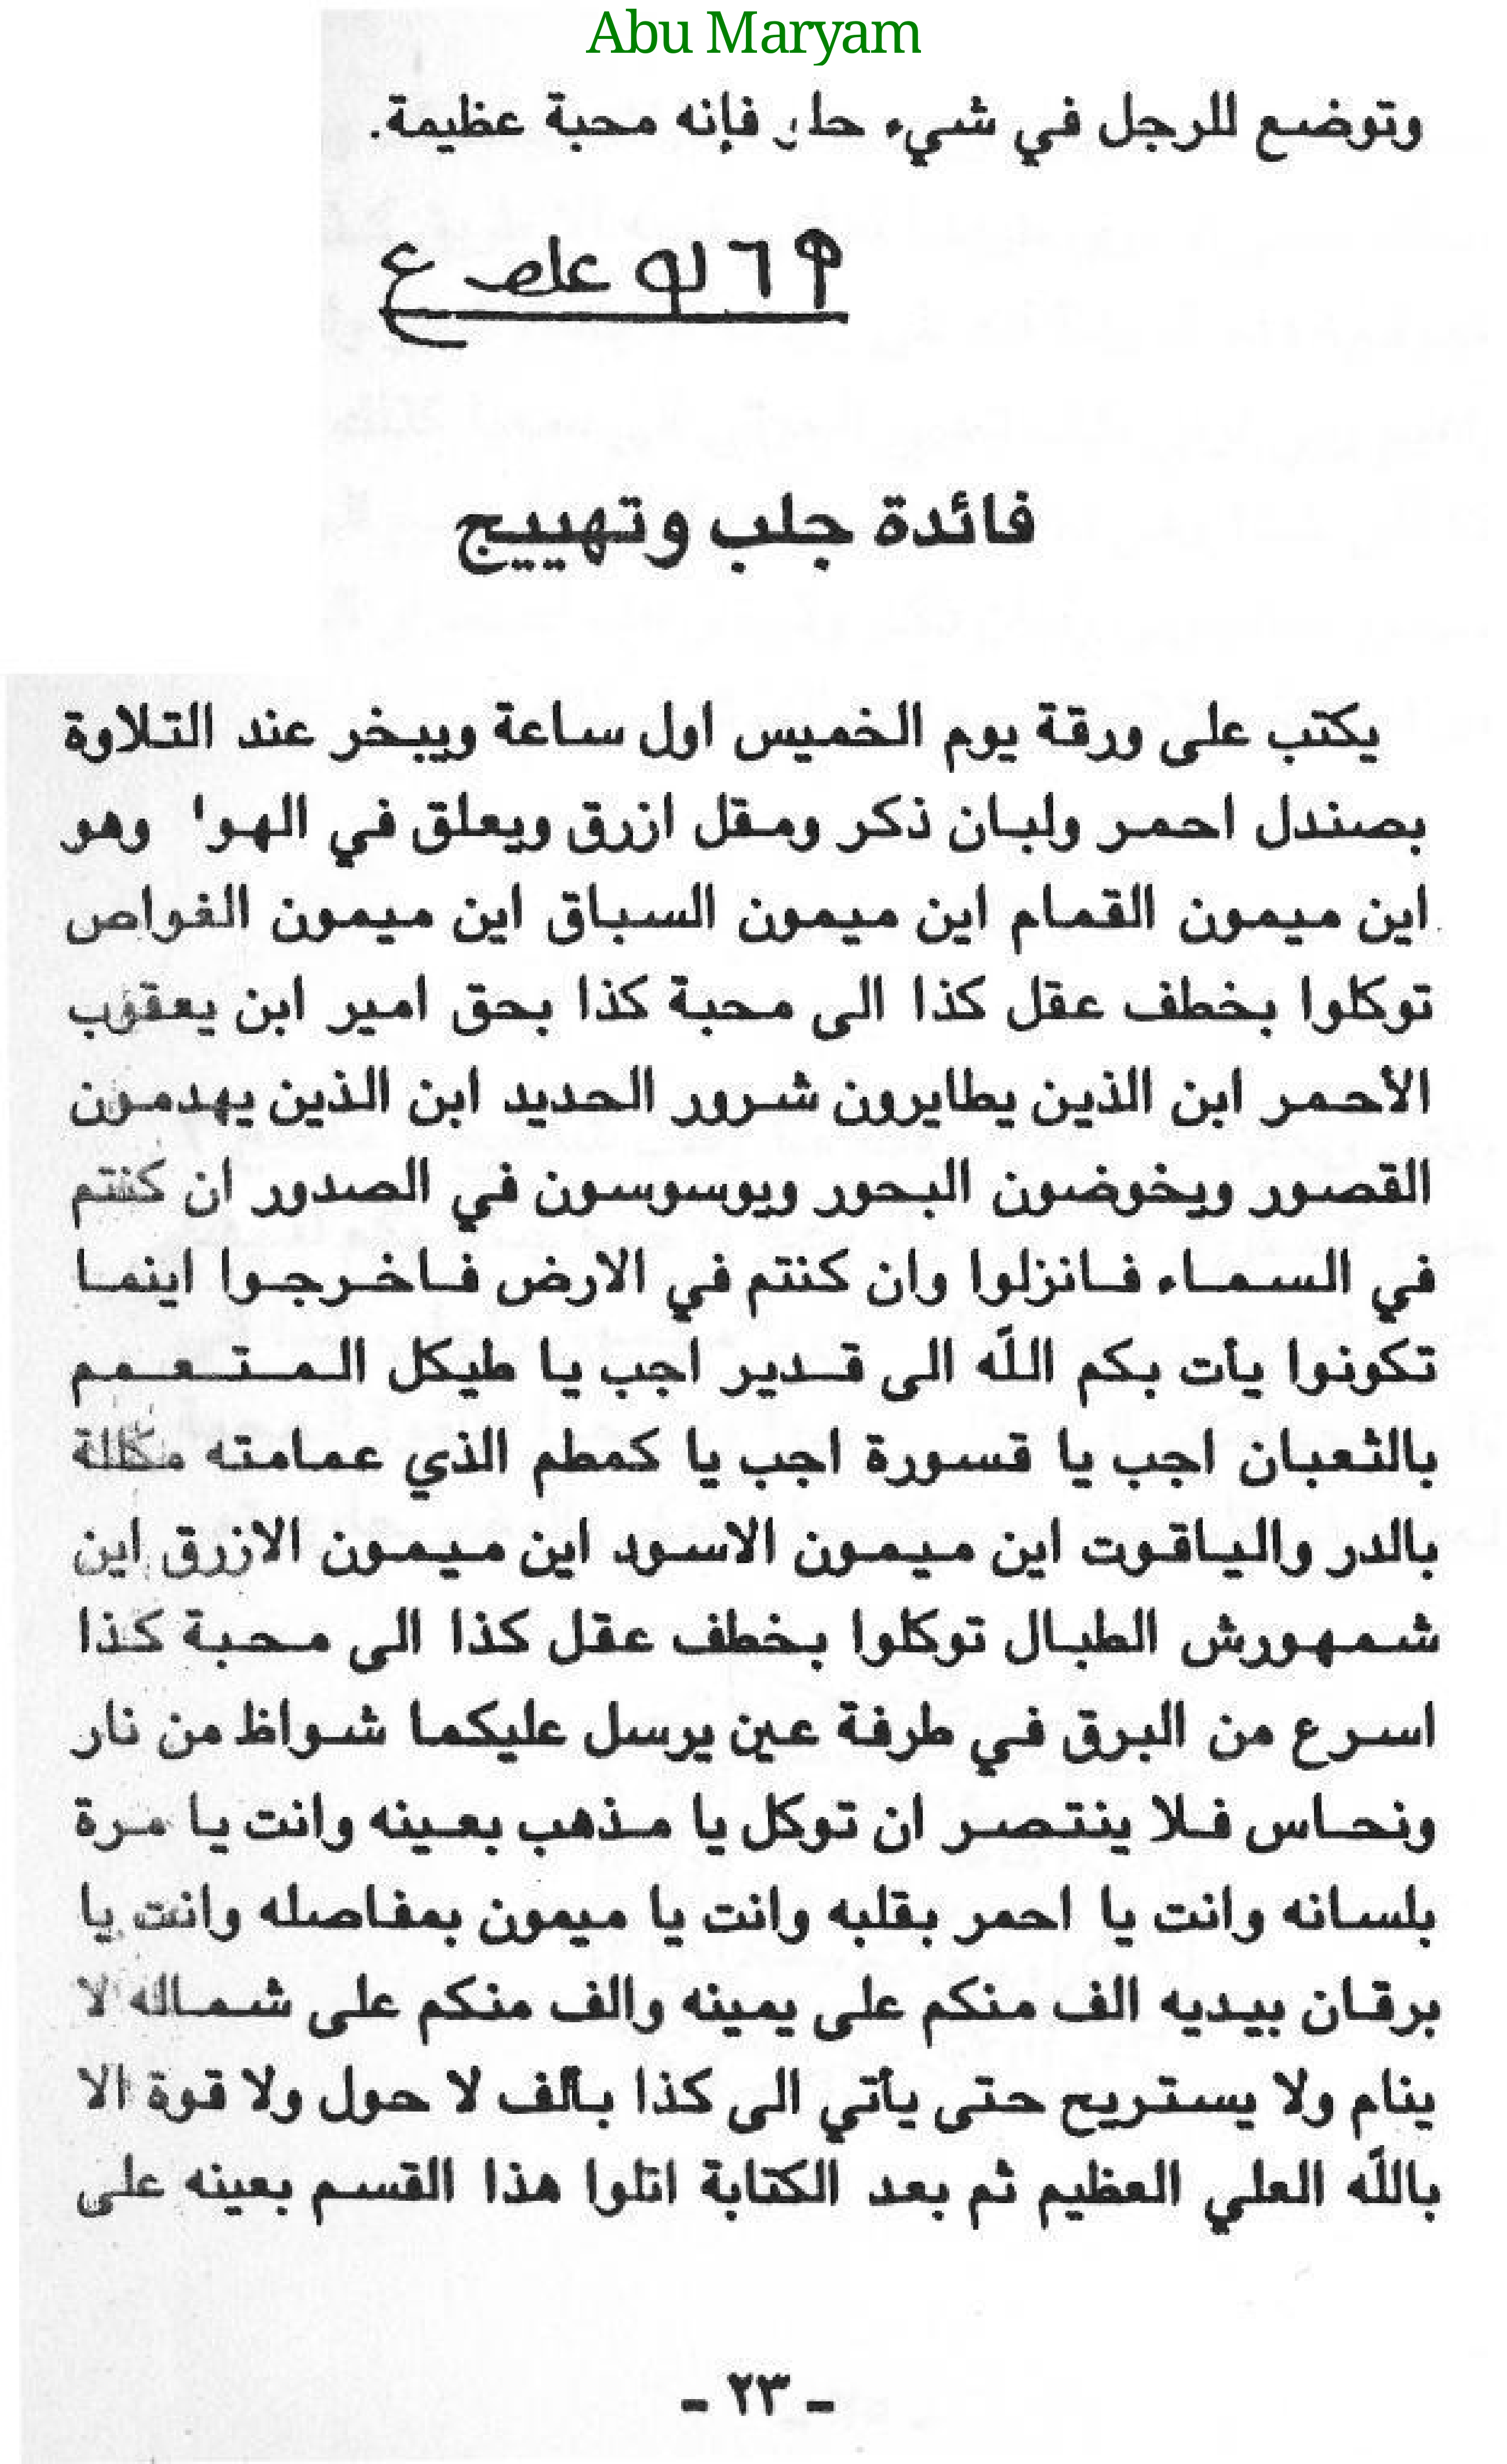 Abu Maryam
وتوضع للرجل في شيء حار فإنه محبة عظيمة.
فائدة جلب وتهييج
يكتب على ورقة يوم الخميس اول ساعة ويبخر عند التلاوة
بصندل احمر ولبان ذكر ومقل ازرق ويعلق في الهوا وهو
اين ميمون القمام اين ميمون السباق اين ميمون الغواص
توكلوا بخطف عقل كذا الى محبة كذا بحق امير ابن يعقوب
الأحمر ابن الذين يطايرون شرور الحديد ابن الذين يهدمون
القصور ويخوضون البحور ويوسوسون في الصدور ان كنتم
في السماء فانزلوا وان كنتم في الارض فاخرجوا اينما
تكونوا يأت بكم اللّه الى قدير اجب يا طيكل المتعمم
بالثعبان اجب يا قسورة اجب يا كمطم الذي عمامته مكللة
بالدر والياقوت اين ميمون الاسود اين ميمون الازرق اين
شمهورش الطبال توكلوا بخطف عقل كذا الى محبة كذا
اسرع من البرق في طرفة عين يرسل عليكما شواظ من نار
ونحاس فلا ينتصر ان توكل يا مذهب بعينه وانت يا مرة
بلسانه وانت يا احمر بقلبه وانت يا ميمون بمفاصله وانت يا
برقان بيديه الف منكم على يمينه والف منكم على شماله لا
ينام ولا يستريح حتى يأتي الى كذا بألف لا حول ولا قوة الا
باللّه العلي العظيم ثم بعد الكتابة اتلوا هذا القسم بعينه على
- ٢٣ -